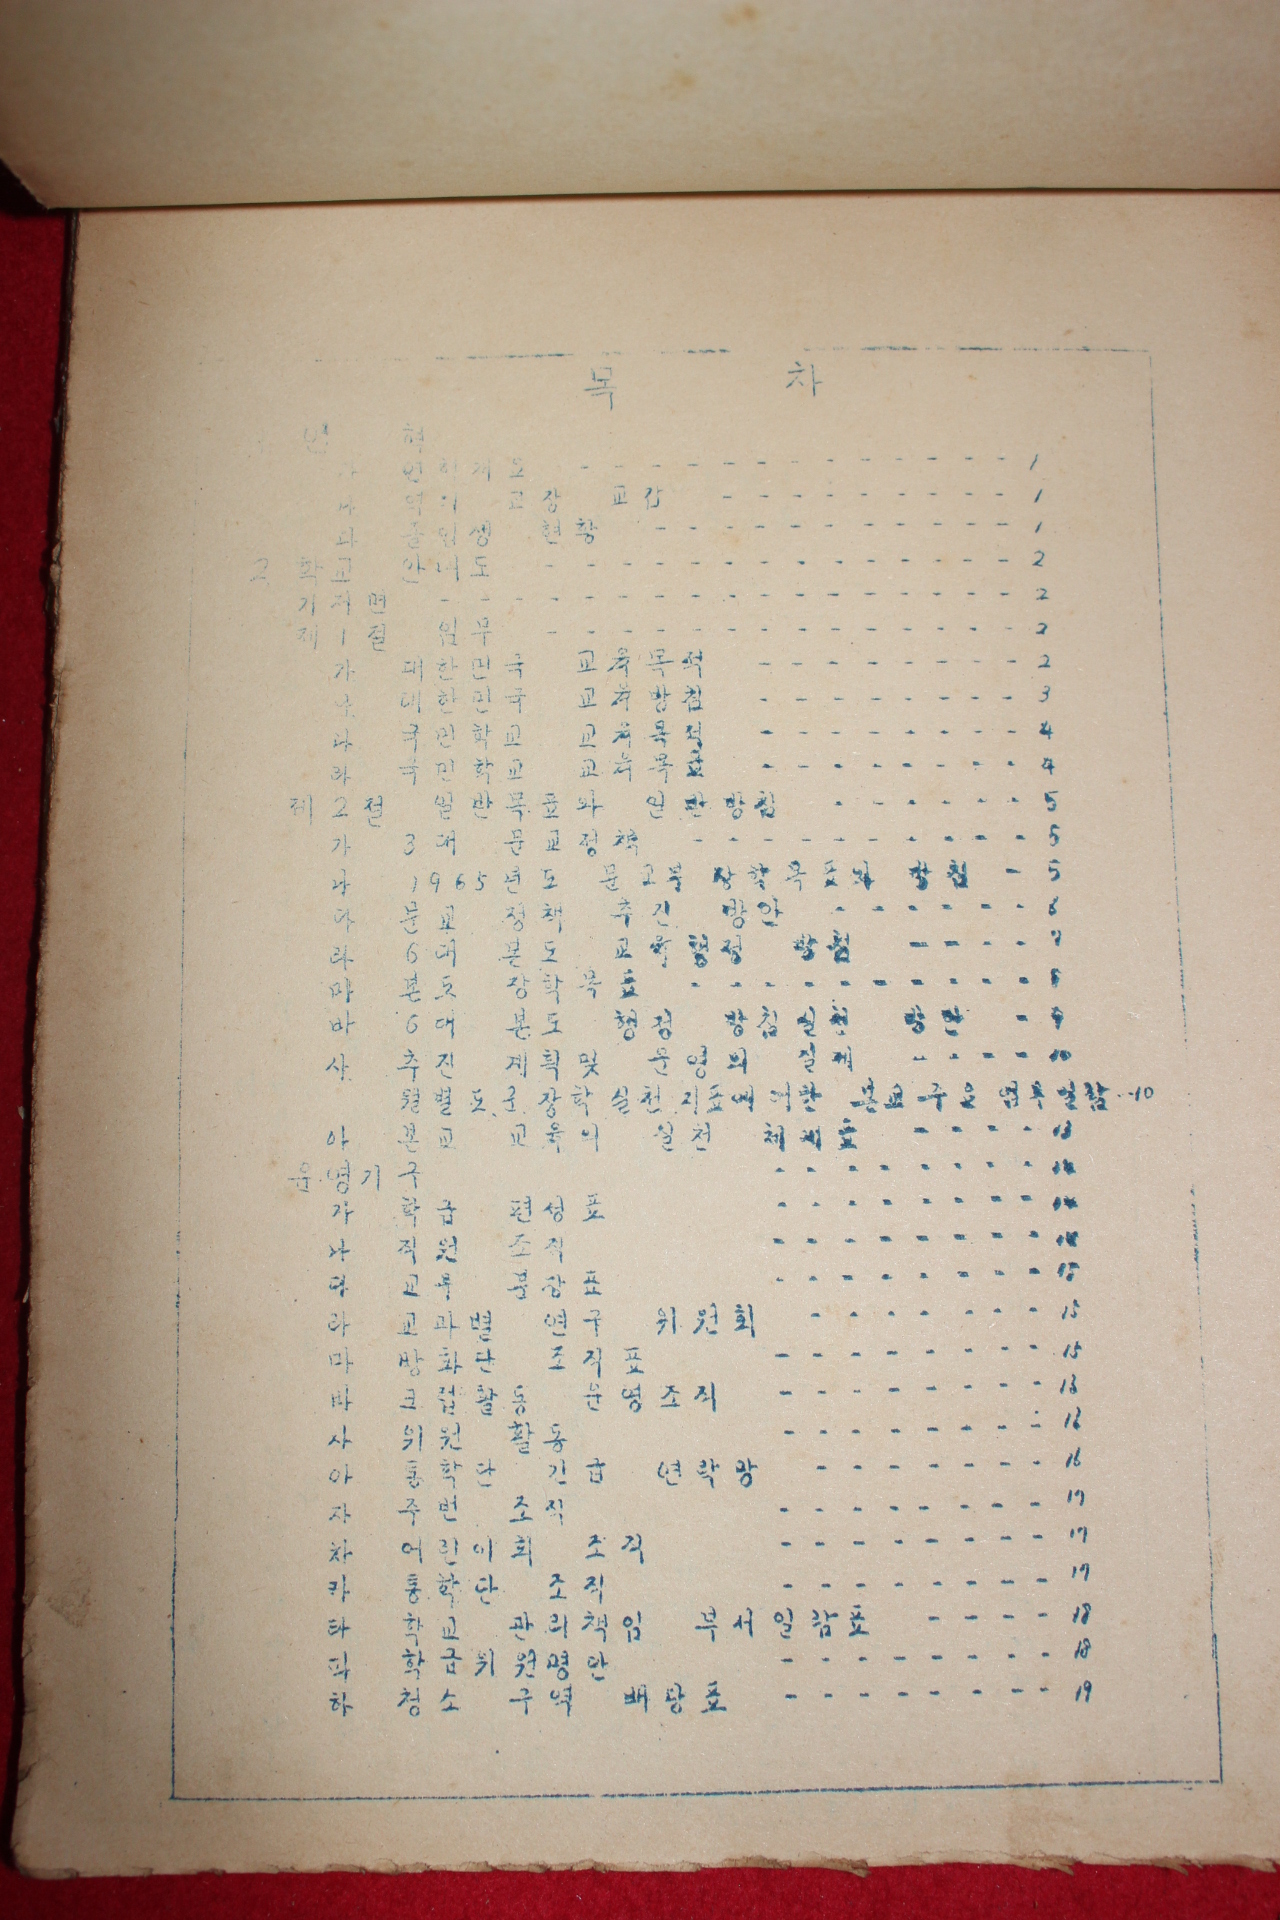 목 차
연 혁
가 연혁개도 - - - - - - - - - - - - - 1
나 역대 교장 교감 - - - - - - - - - 1
다 졸업생 현황 - - - - - - - - - - - 1
2 학교 안내도 - - - - - - - - - - - - - - 2
기저면 - - - - - - - - - - - - - - - - - 2
제1절 임무 - - - - - - - - - - - - - - 2
가 대한민국 교육목적 - - - - - - - - 2
나 대한민국 교육방침 - - - - - - - - 3
다 국민학교 교육목적 - - - - - - - - 4
라 국민학교 교육목표 - - - - - - - - 4
제2절 일반목표와 일반방침 - - - - - - 5
가 3대 문교정책 - - - - - - - - - - 5
나 1965년도 문교부 장학목표와 방침 - 5
다 문교 정책 추진 방안 - - - - - - 6
라 6대 본도 교육행정 방침 - - - - 7
마 본도 장학목표 - - - - - - - - - - 8
바 6대 본도 행정 방침실천 방안 - 9
사 추진 계획및 운영의 실제 - - - - 10
월별 도.군 장학 실천지표에 의한 본교 주요 업무 일람 - - 10
아 본교 교육의 실천 체계표 - - - -
운영기구 - - - - - - - -
가 학급 편성표 - - - - - - - -
나 직원 조직 - - - - - - - -
다 교무 분장표 - - - - - - - - 15
라 교과별 연구 위원회 - - - - - - - 15
마 방화단 조직표 - - - - - - - - 15
바 크럽활동 운영조직 - - - - - - - - 16
사 위원 활동 - - - - - - - - 16
아 통학단 긴급 연락망 - - - - - - - 16
자 주번 조직 - - - - - - - - 17
차 어린이회 조직 - - - - - - - - 17
카 통학단 조직 - - - - - - - - 17
타 학교 관리책임 부서일람표 - - - - 18
파 학급위원명단 - - - - - - - - 18
하 청소 구역 배당표 - - - - - - - - 19